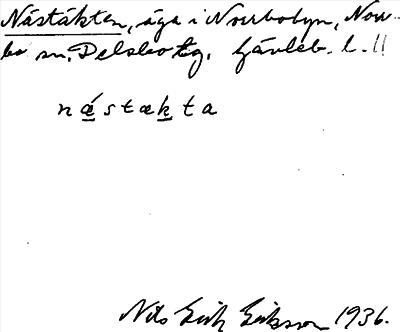 Nästäkten, äga i Norrbobyn, Norr-
bo sn, Delsbo tg. Gävleb. l. !!
næstækta
Nils Erik Eriksson 1936.